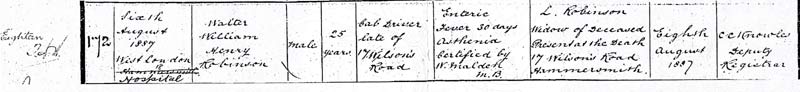 172
Sixth
August
1887
West London
Hospital
Walter
William
Henry
Robinson
Male
25
years
Cab Driver
late of
17 Wilson's
Road
Enteric
Fever 30 days
Asthenia
Certified by
W. Maldeh
M.B.
L. Robinson
Widow of Deceased
Present at the Death
17 Wilson's Road
Hammersmith
Eighth
August
1887
C C Knowles
Deputy
Registrar